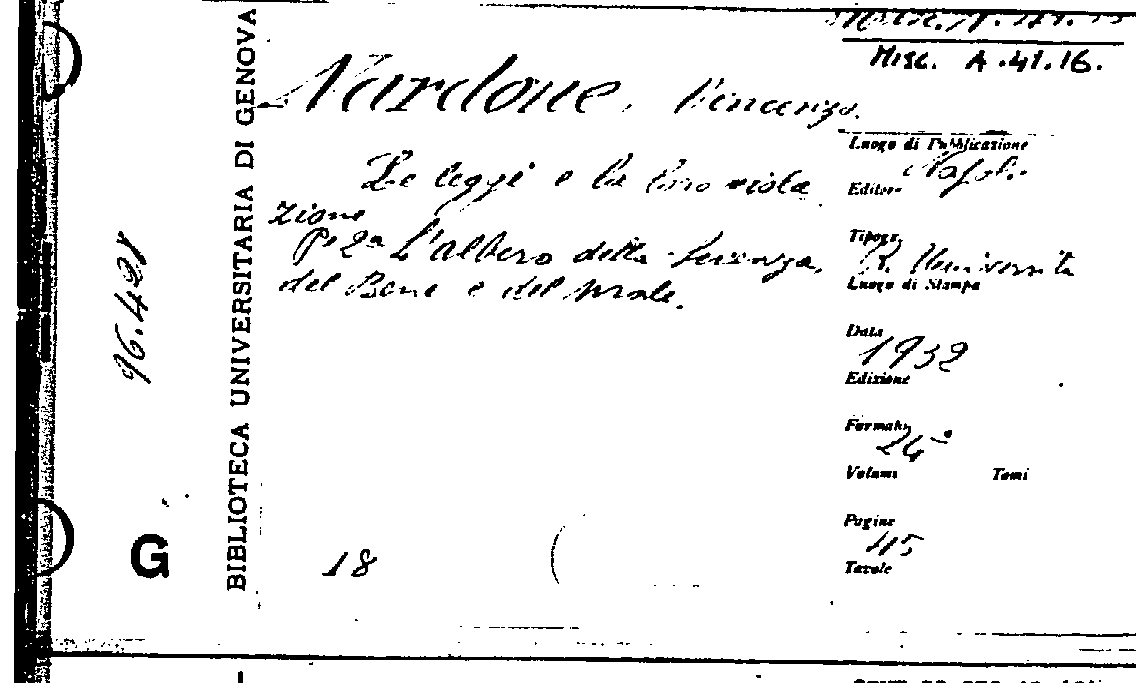 Misc. A.41.16.
Nardone, Vincenzo.
Le leggi e la loro viola
zione
Pe 2ª L'albero della Scienza,
del Bene e del Male.
Luogo di Pubblicazione
Napoli
Editore
Tipogr.
R. Università
Luogo di Stampa
Data
1932
Edizione
Formato
24°
Volumi Tomi
Pagine
45
Tavole
18
BIBLIOTECA UNIVERSITARIA DI GENOVA
96.428
G